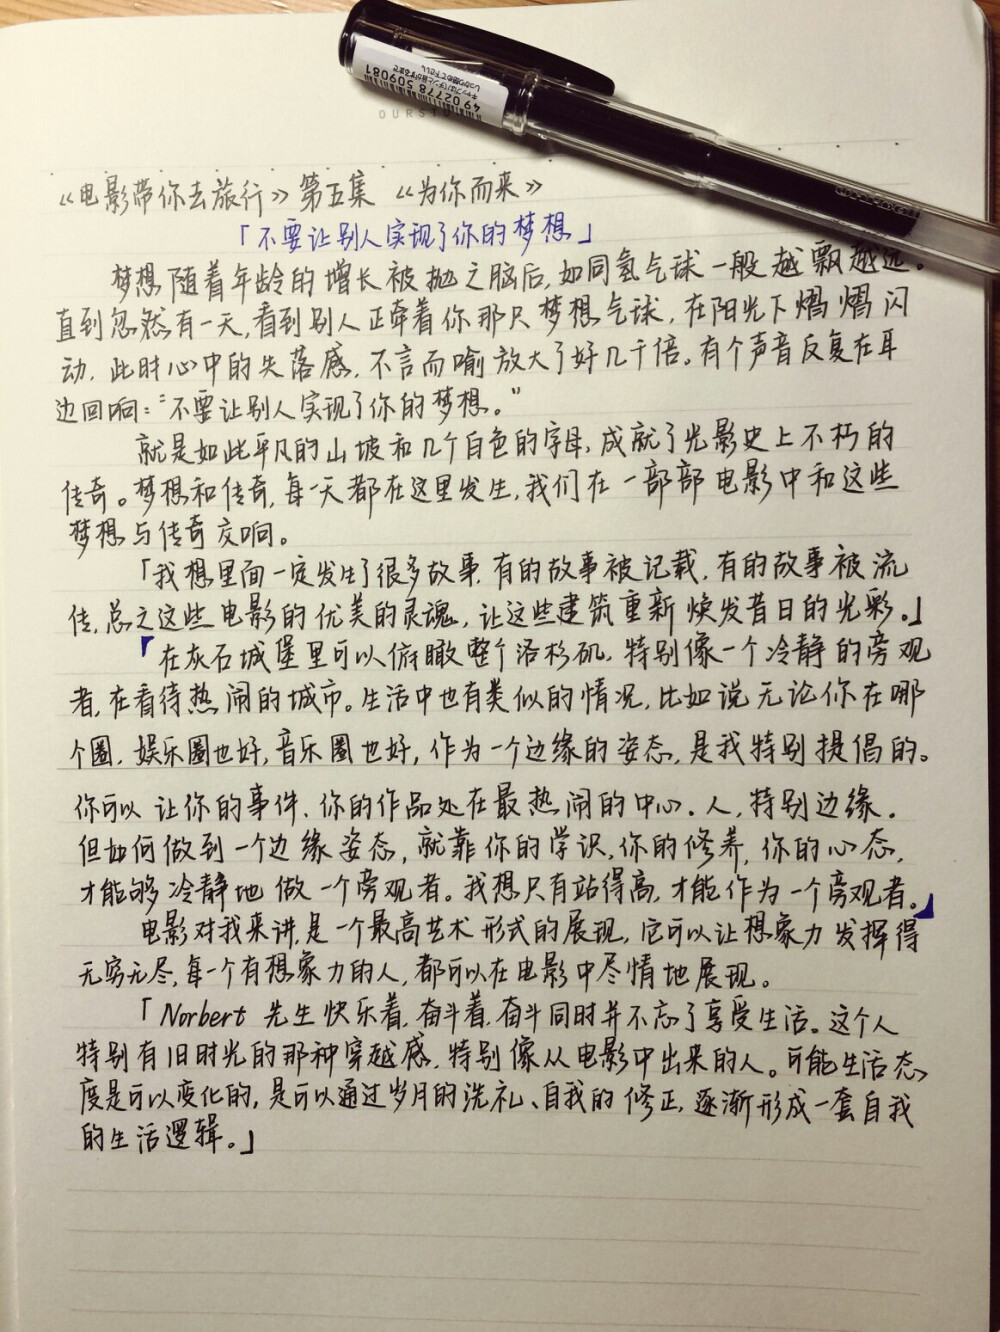 4902778 509081
OURS
《电影带你去旅行》第五集 《为你而来》
「不要让别人实现了你的梦想」
梦想随着年龄的增长被抛之脑后,如同氢气球一般越飘越远。
直到忽然有一天,看到别人正牵着你那只梦想气球,在阳光下熠熠闪
动,此时心中的失落感,不言而喻放大了好几千倍。有个声音反复在耳
边回响:“不要让别人实现了你的梦想。”
就是如此平凡的山坡和几个白色的字母,成就了光影史上不朽的
传奇。梦想和传奇,每一天都在这里发生,我们在一部部电影中和这些
梦想与传奇交响。
「我想里面一定发生了很多故事,有的故事被记载,有的故事被流
传,总之这些电影的优美的灵魂,让这些建筑重新焕发昔日的光彩。」
「在灰石城堡里可以俯瞰整个洛杉矶,特别像一个冷静的旁观
者,在看待热闹的城市。生活中也有类似的情况,比如说无论你在哪
个圈,娱乐圈也好,音乐圈也好,作为一个边缘的姿态,是我特别提倡的。
你可以让你的事件、你的作品处在最热闹的中心.人,特别边缘.
但如何做到一个边缘姿态,就靠你的学识,你的修养,你的心态,
才能够冷静地做一个旁观者。我想只有站得高,才能作为一个旁观者。」
电影对我来讲,是一个最高艺术形式的展现,它可以让想象力发挥得
无穷无尽,每一个有想象力的人,都可以在电影中尽情地展现。
「Norbert 先生快乐着,奋斗着,奋斗同时并不忘了享受生活。这个人
特别有旧时光的那种穿越感,特别像从电影中出来的人。可能生活态
度是可以变化的,是可以通过岁月的洗礼、自我的修正,逐渐形成一套自我
的生活逻辑。」